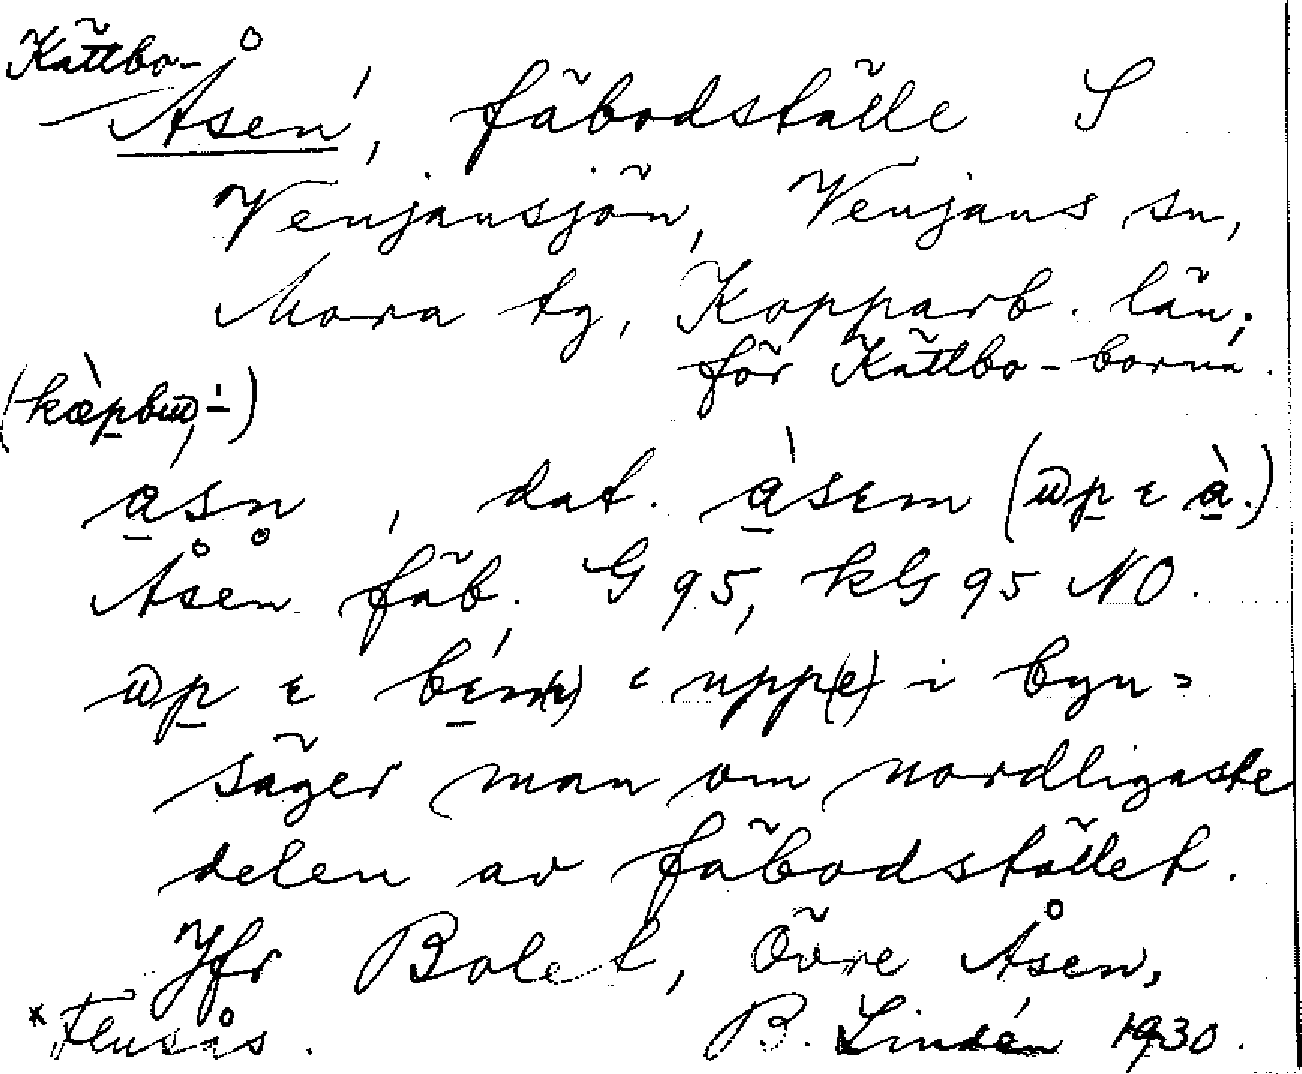 Kättbo-
Åsen, fäbodställe S
Venjansjön, Venjans sn,
Mora tg, Kopparb. län;
för Kättbo-borna.
(kæ̀p̱bɯ,-̀)
a̱sn, dat. à̱sɛm (ɯp̱ ɛ à̱.)
Åsen fäb. G 95, kG 95 NO.
ɯp̱ ɛ bɛ́m(ɛ) = upp(e) i byn =
säger man om nordligaste
delen av fäbodstället.
Jfr Bolet, Övre Åsen,
*Flusås. B. Lindén 1930.